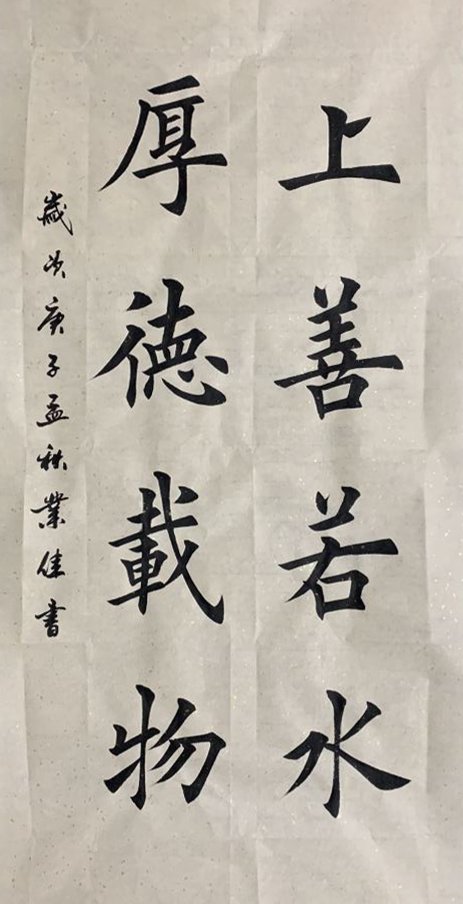 上善若水
厚德載物
歲次庚子孟秋業佳書